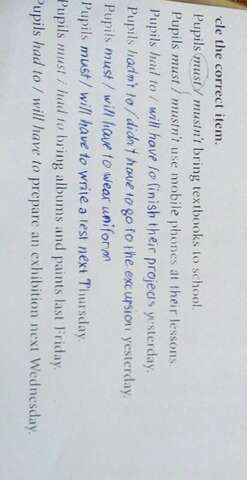 cle the correct item.
Pupils must / mustn't bring textbooks to school.
Pupils must / mustn't use mobile phones at their lessons.
Pupils had to / will have to finish their projects yesterday.
Pupils hadn't to / didn't have to go to the excursion yesterday.
Pupils must / will have to wear uniform
Pupils must / will have to write a test next Thursday.
Pupils must / had to bring albums and paints last Friday.
Pupils had to / will have to prepare an exhibition next Wednesday.